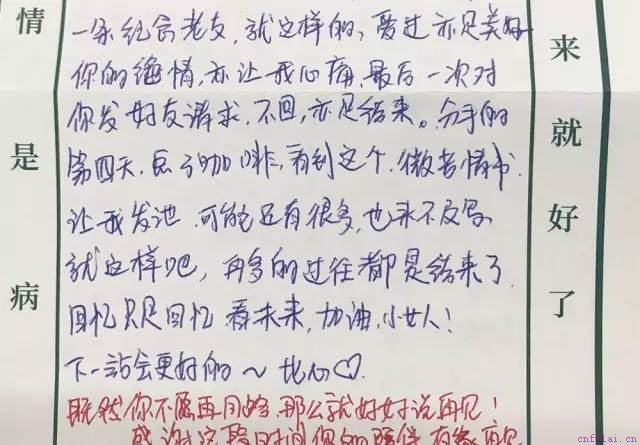 情是病
纪念老友,就这样的,爱过亦是美好
你的绝情,亦让我心痛,最后一次对
你发好友请求,不回,亦是结束。分手的
第四天,点了咖啡,看到这个,微苦情书.
让我发泄.可能还有很多,也来不及写.
就这样吧,再多的过往都是结束了.
回忆只是回忆,看未来,加油,小女人!
下一站会更好的~比心♡.
既然你不愿再回,那么就好好说再见!
感谢这段时间你的陪伴,有缘
来就好了
cnfulai.cn